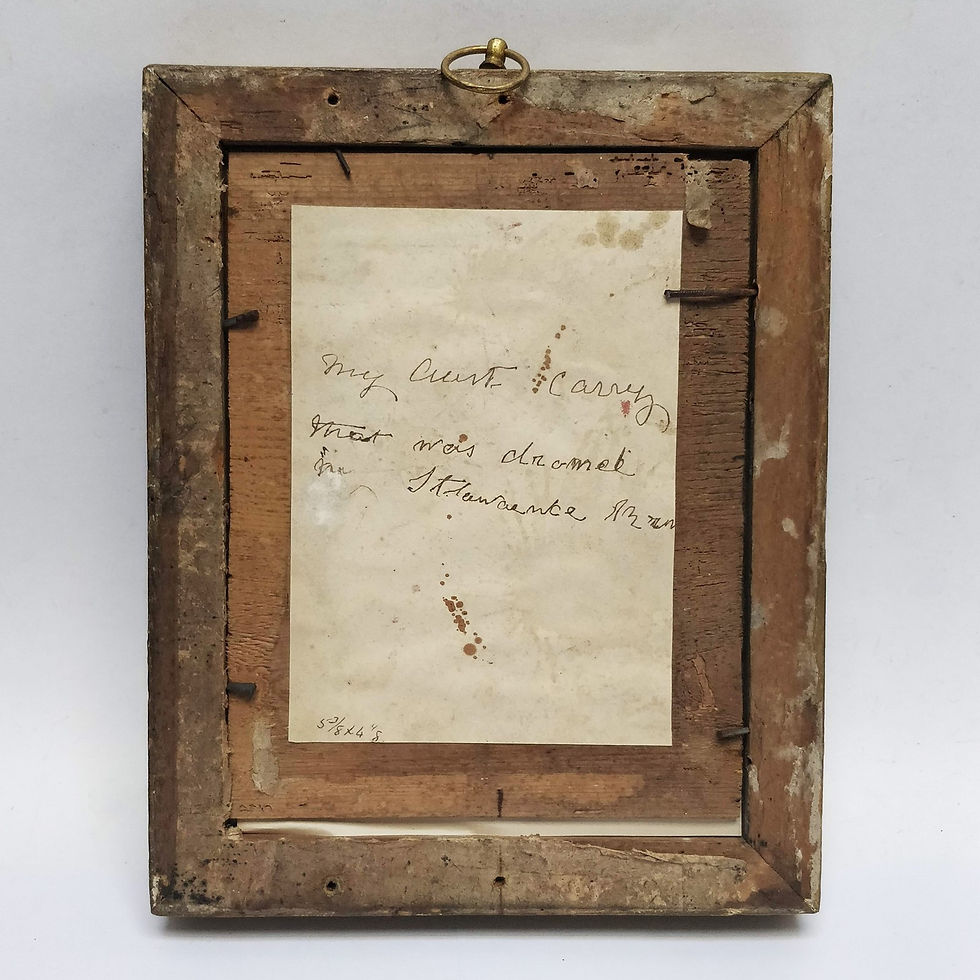 My Aunt Carry
that was drowned
in St Lawrence
5 3/8 x 4